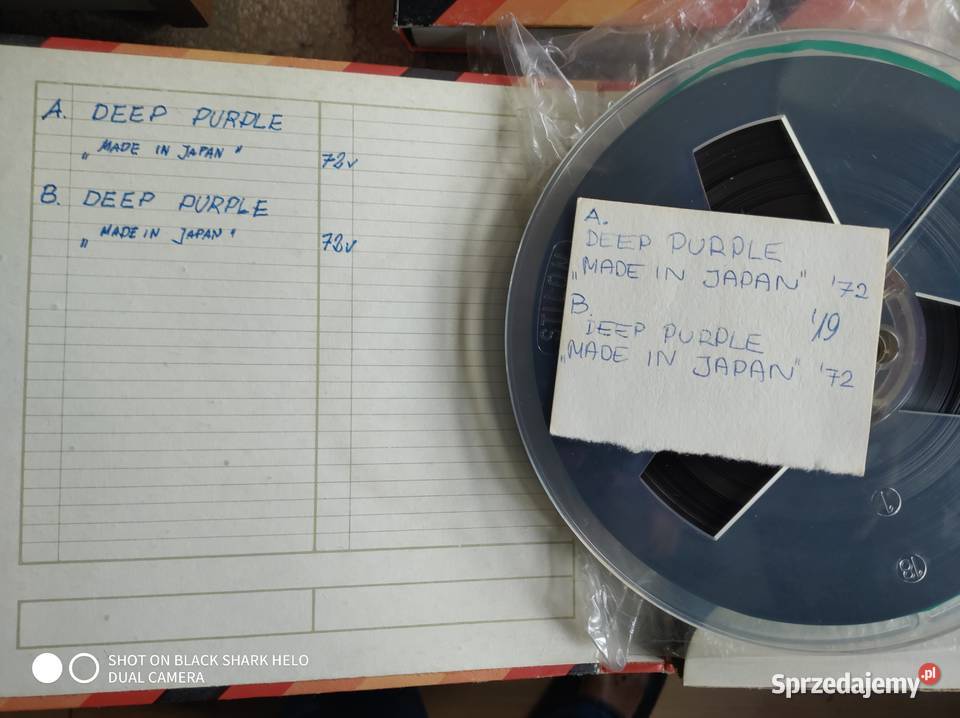 A. DEEP PURPLE
„MADE IN JAPAN" 72r
B. DEEP PURPLE
„MADE IN JAPAN" 72r
STILON
A.
DEEP PURPLE
„MADE IN JAPAN" '72
B. '19
DEEP PURPLE
„MADE IN JAPAN" '72
1
18
SHOT ON BLACK SHARK HELO
DUAL CAMERA
Sprzedajemy.pl